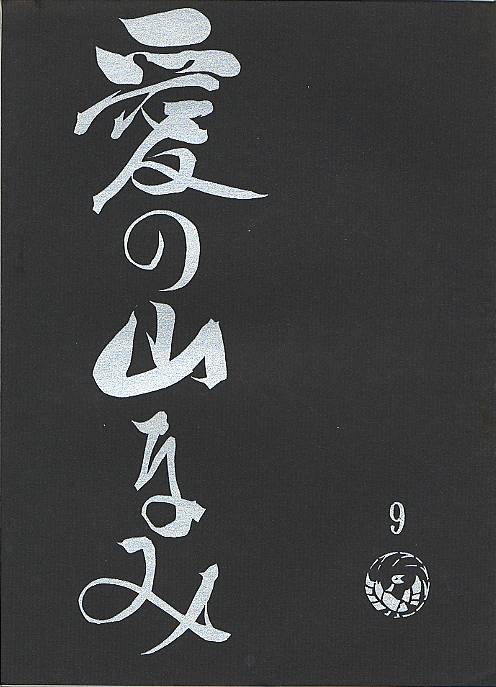 愛の山なみ
9